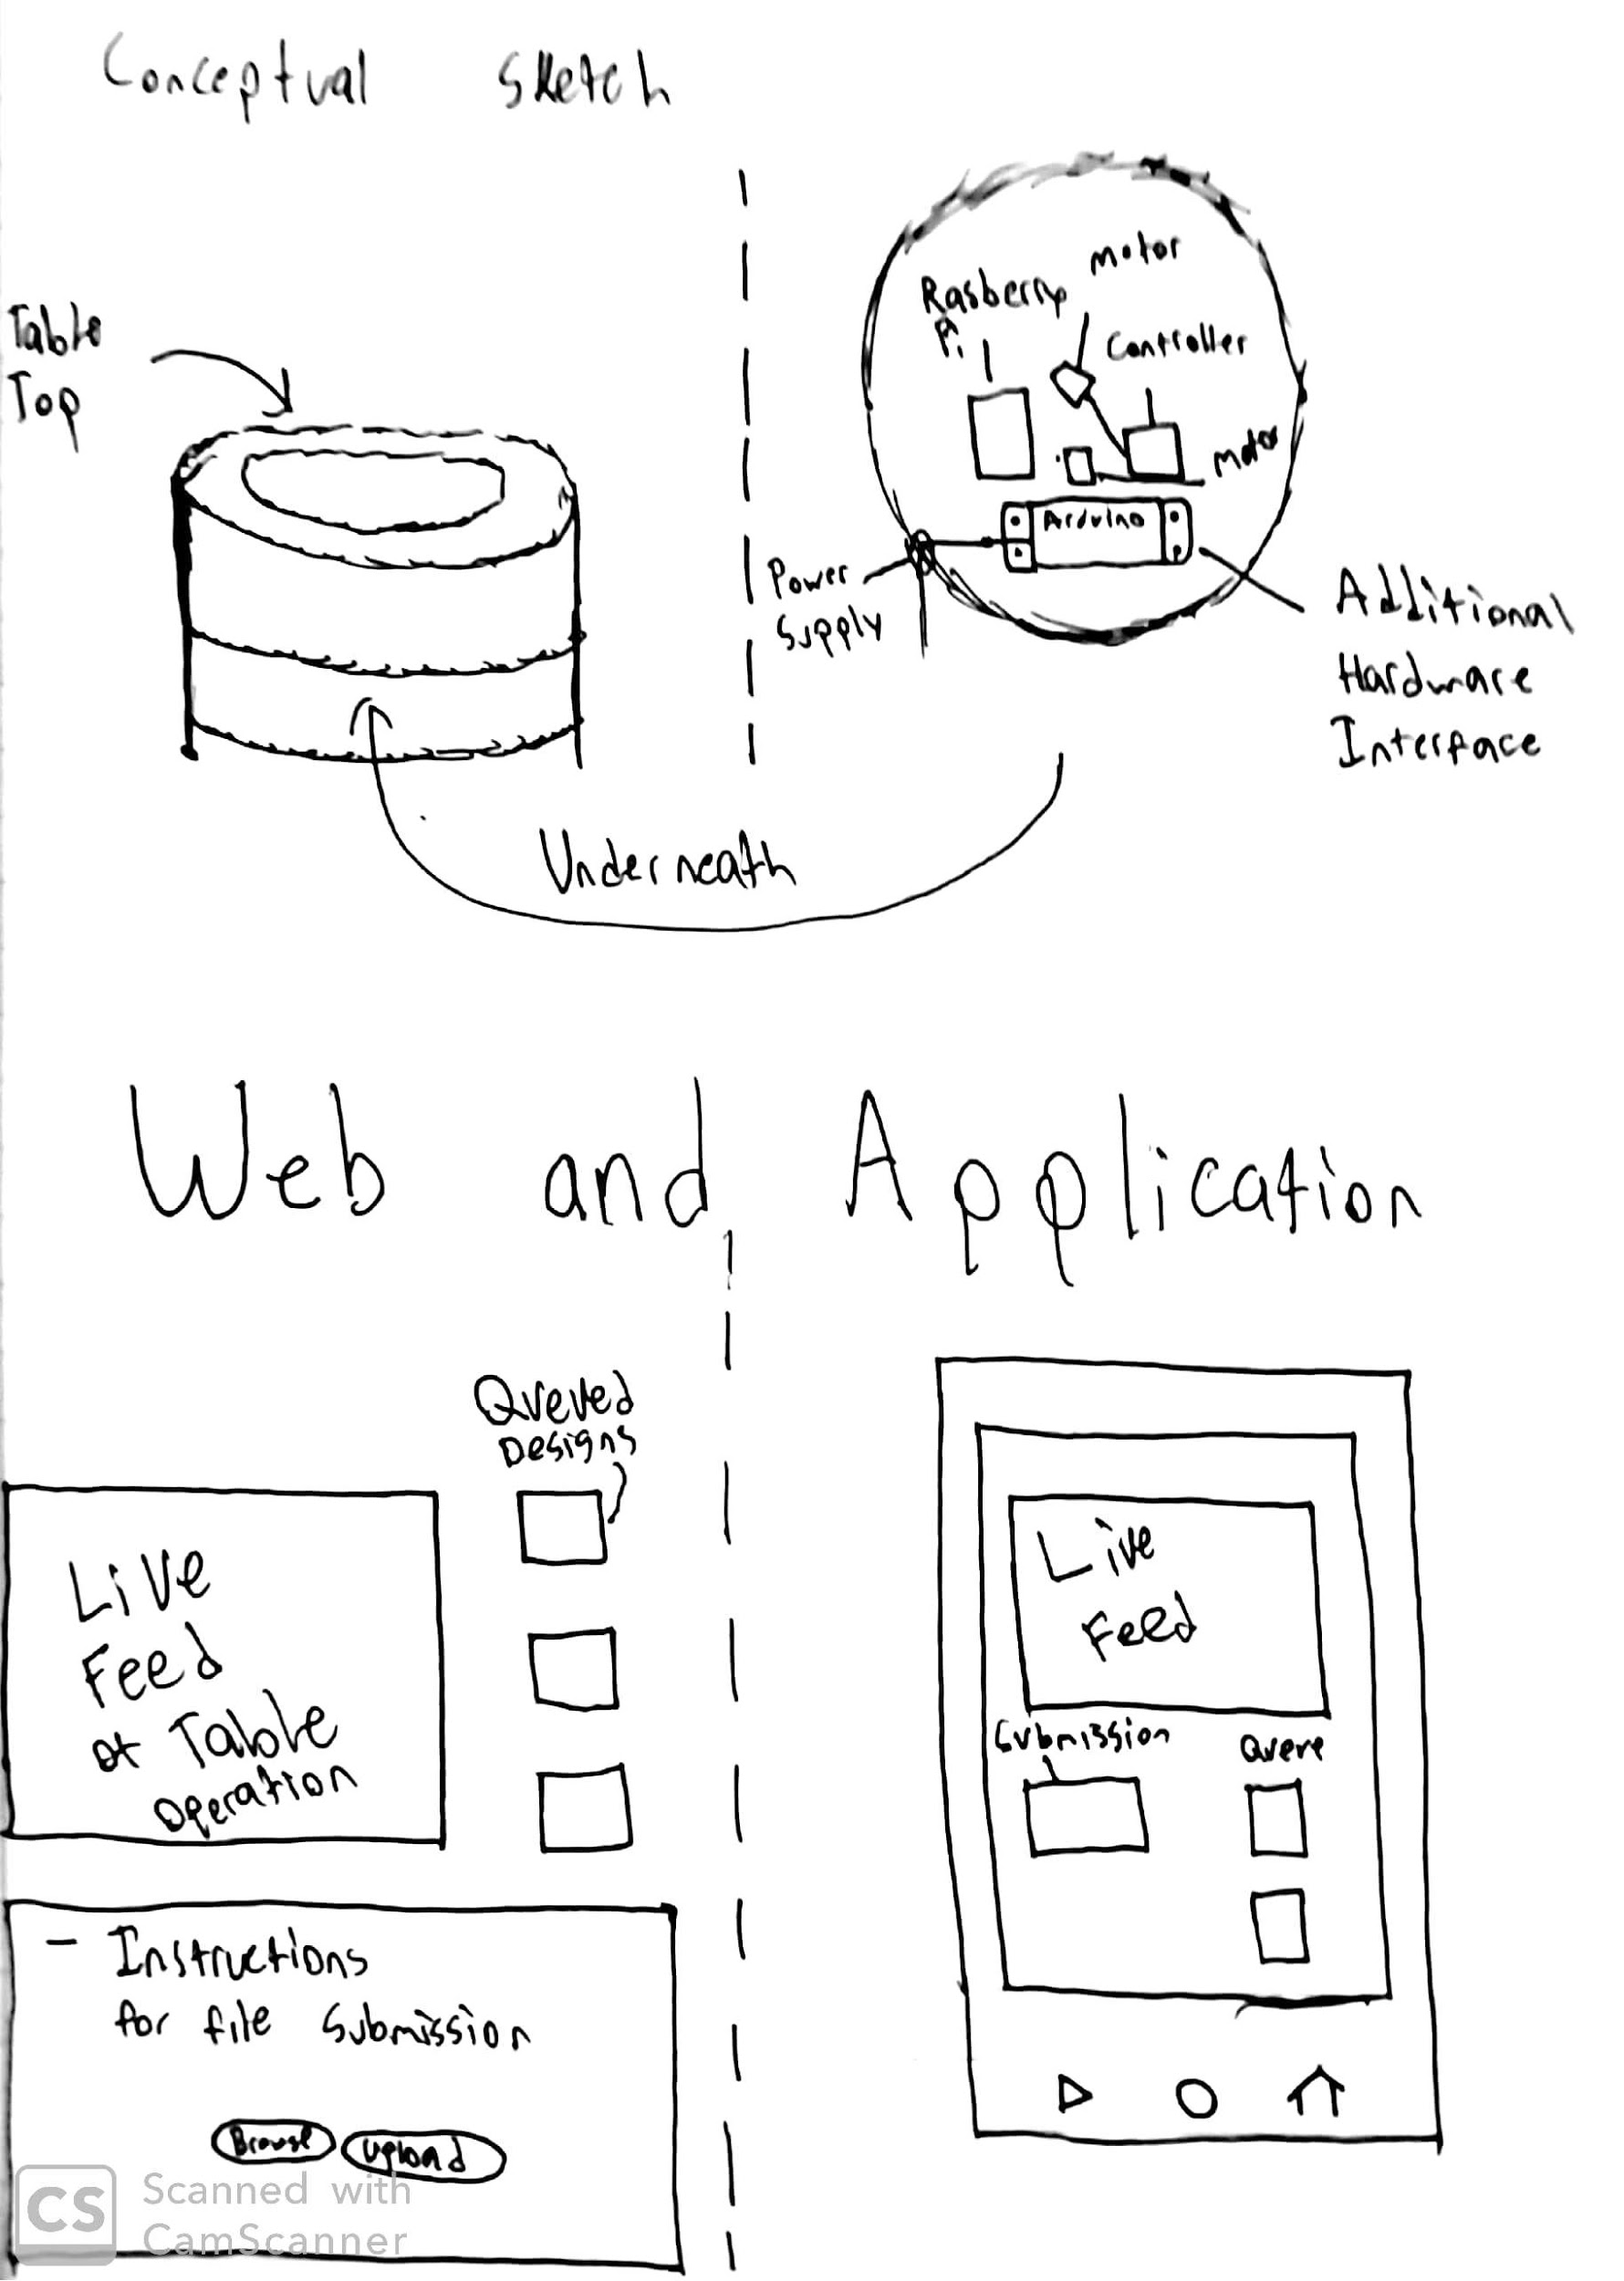 Conceptual Sketch
Table
Top
Rasberry
Pi
motor
Controller
motor
Arduino
Power
Supply
Additional
Hardware
Interface
Underneath
Web and Application
Queued
Designs
Live
Feed
of Table
operation
- Instructions
for file submission
Browse
Upload
Live
Feed
Submission
Queue
CS
Scanned with
CamScanner